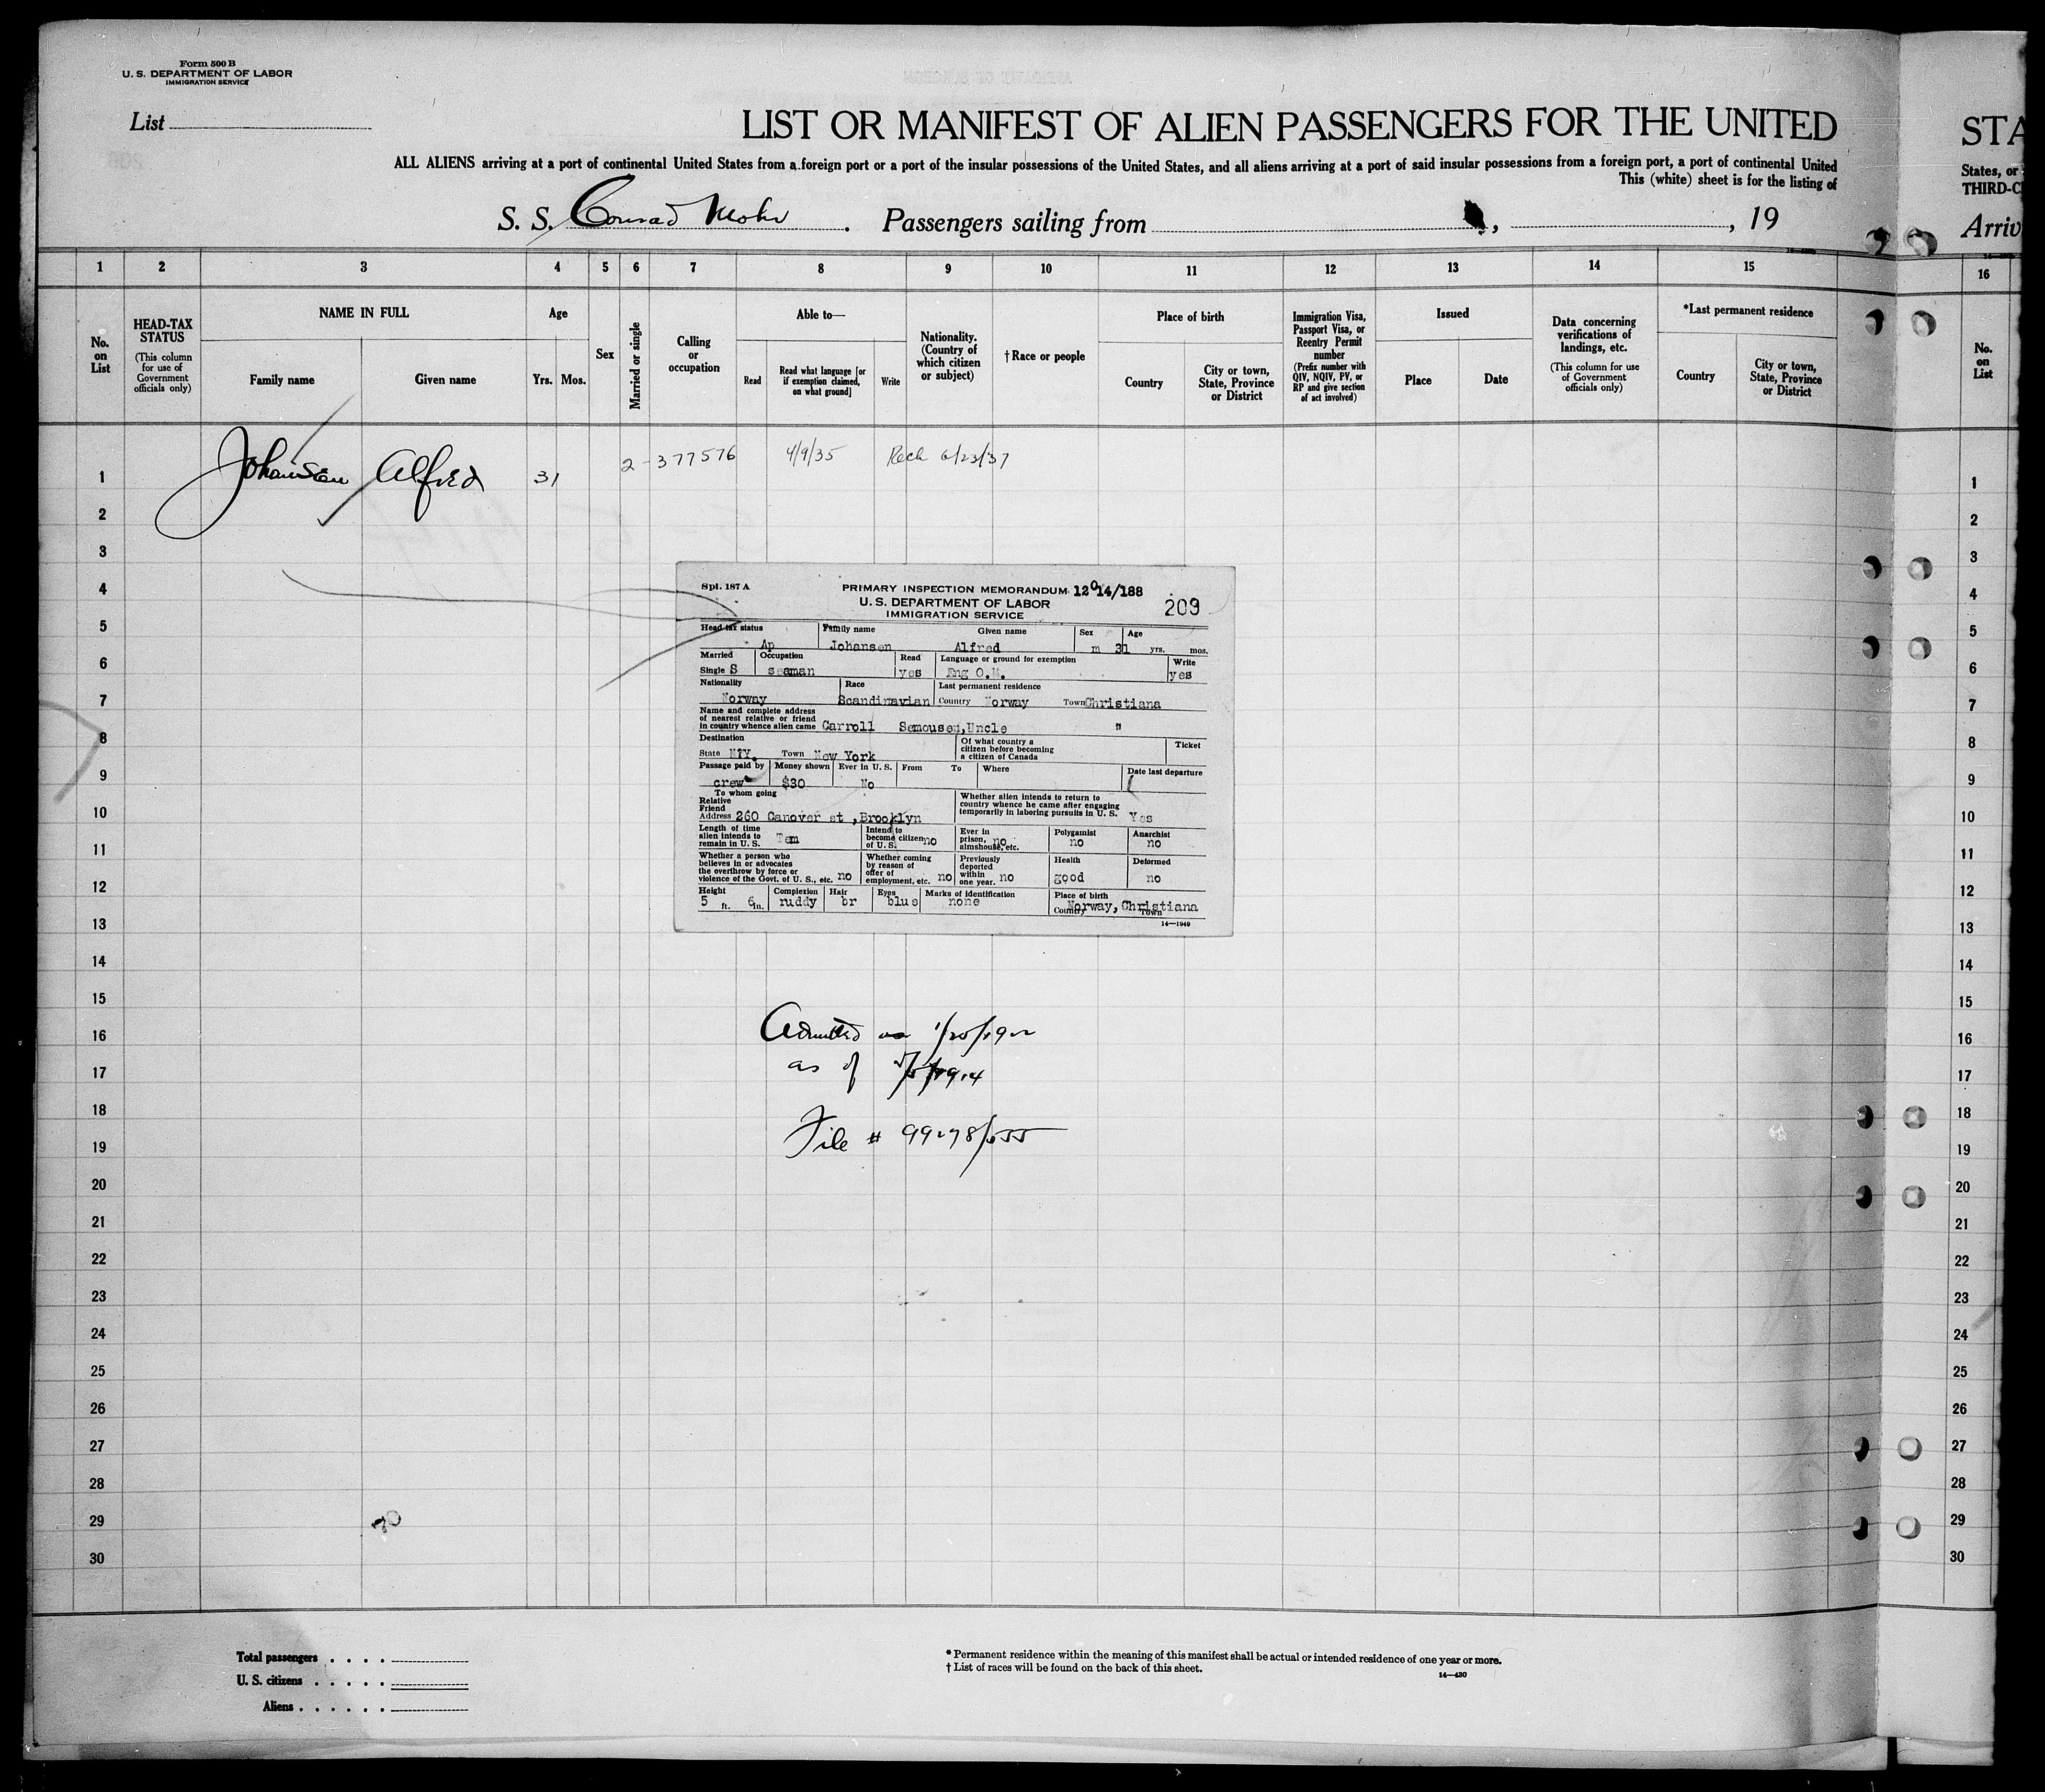 Form 500 B
U. S. DEPARTMENT OF LABOR
IMMIGRATION SERVICE
List
LIST OR MANIFEST OF ALIEN PASSENGERS FOR THE UNITED
STA
ALL ALIENS arriving at a port of continental United States from a foreign port or a port of the insular possessions of the United States, and all aliens arriving at a port of said insular possessions from a foreign port, a port of continental United
States, or
This (white) sheet is for the listing of
THIRD-C
S. S. Conrad Mohr. Passengers sailing from , , 19
Arriv
1 2 3 4 5 6 7 8 9 10 11 12 13 14 15
16
No. on List
HEAD-TAX STATUS
(This column for use of Government officials only)
NAME IN FULL
Family name
Given name
Age
Yrs. Mos.
Sex
Married or single
Calling or occupation
Able to—
Read
Read what language [or if exemption claimed, on what ground]
Write
Nationality. (Country of which citizen or subject)
†Race or people
Place of birth
Country
City or town, State, Province or District
Immigration Visa, Passport Visa, or Reentry Permit number
(Prefix number with QIV, NQIV, PV, or RP and give section of act involved)
Issued
Place
Date
Data concerning verifications of landings, etc.
(This column for use of Government officials only)
*Last permanent residence
Country
City or town, State, Province or District
No. on List
1 Johansen Alfred 31 2-377576 4/9/35 6/23/37
1
2
2
3
3
4
4
5
5
6
6
7
7
8
8
9
9
10
10
11
11
12
12
13
13
14
14
15
15
16
16
17
17
18
18
19
19
20
20
21
21
22
22
23
23
24
24
25
25
26
26
27
27
28
28
29
29
30
30
Spl. 187 A
PRIMARY INSPECTION MEMORANDUM 12014/188
U. S. DEPARTMENT OF LABOR
209
IMMIGRATION SERVICE
Head tax status Family name Given name Sex Age
Ap Johansen Alfred m 31 yrs. mos.
Married Occupation Read Language or ground for exemption Write
Single S seaman yes Eng O.M. yes
Nationality Race Last permanent residence
Norway Scandinavian Country Norway Town Christiana
Name and complete address
of nearest relative or friend
in country whence alien came Carroll Semousen, Uncle "
Destination Of what country a citizen before becoming a citizen of Canada Ticket
State NTY. Town New York
Passage paid by Money shown Ever in U. S. From To Where Date last departure
crew $30 No
To whom going
Relative
Friend
Address 260 Canover st ,Brooklyn
Whether alien intends to return to country whence he came after engaging temporarily in laboring pursuits in U. S. Yes
Length of time alien intends to remain in U. S. Tem
Intend to become citizen of U. S. no
Ever in prison, almshouse, etc. no
Polygamist no
Anarchist no
Whether a person who believes in or advocates the overthrow by force or violence of the Govt. of U. S., etc. no
Whether coming by reason of offer of employment, etc. no
Previously deported within one year. no
Health good
Deformed no
Height Complexion Hair Eyes Marks of identification Place of birth
5 ft. 6 in. ruddy br blue none Country Norway, Christiana Town
14—1949
Admitted on 1/20/1922
as of 1914
File # 99278/555
Total passengers . . . .
U. S. citizens . . . . .
Aliens . . . . . .
* Permanent residence within the meaning of this manifest shall be actual or intended residence of one year or more.
† List of races will be found on the back of this sheet.
14—430